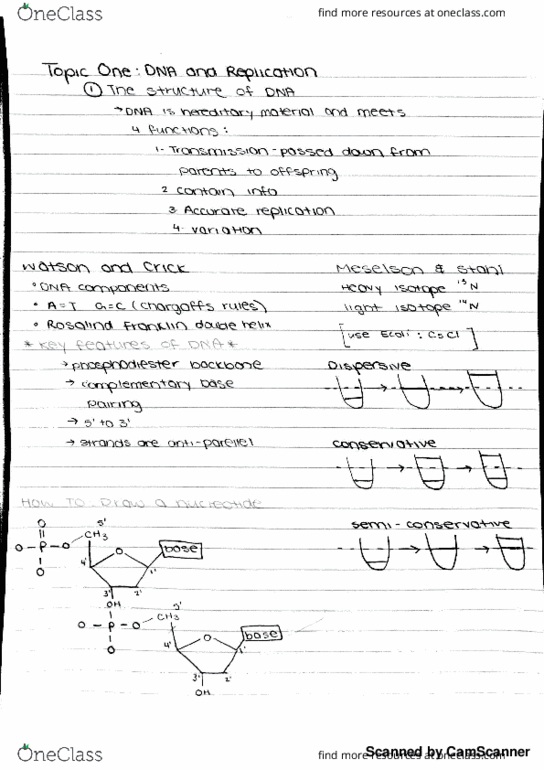 OneClass
find more resources at oneclass.com
Topic One: DNA and Replication
① The structure of DNA
→DNA is hereditary material and meets
4 functions:
1- Transmission-passed down from
parents to offspring
2 contain info
3 Accurate replication
4- variation
Watson and Crick
• DNA components
• A=T G=C (chargaffs rules)
• Rosalind Franklin double helix
* Key features of DNA *
→ phosphodiester backbone
→ complementary base
pairing
→ 5' to 3'
→ strands are anti-parellel
Meselson & Stahl
Heavy isotope ¹⁵N
light isotope ¹⁴N
[use Ecoli: CsCl]
Dispersive
conservative
semi-conservative
How To Draw a nucleotide
O
O-P-O
O
5'
CH3
O
base
4'
1'
3'
2'
OH
O-P-O
O
5'
CH3
O
base
4'
1'
3'
2'
OH
OneClass
find more resources at oneclass.com
Scanned by CamScanner